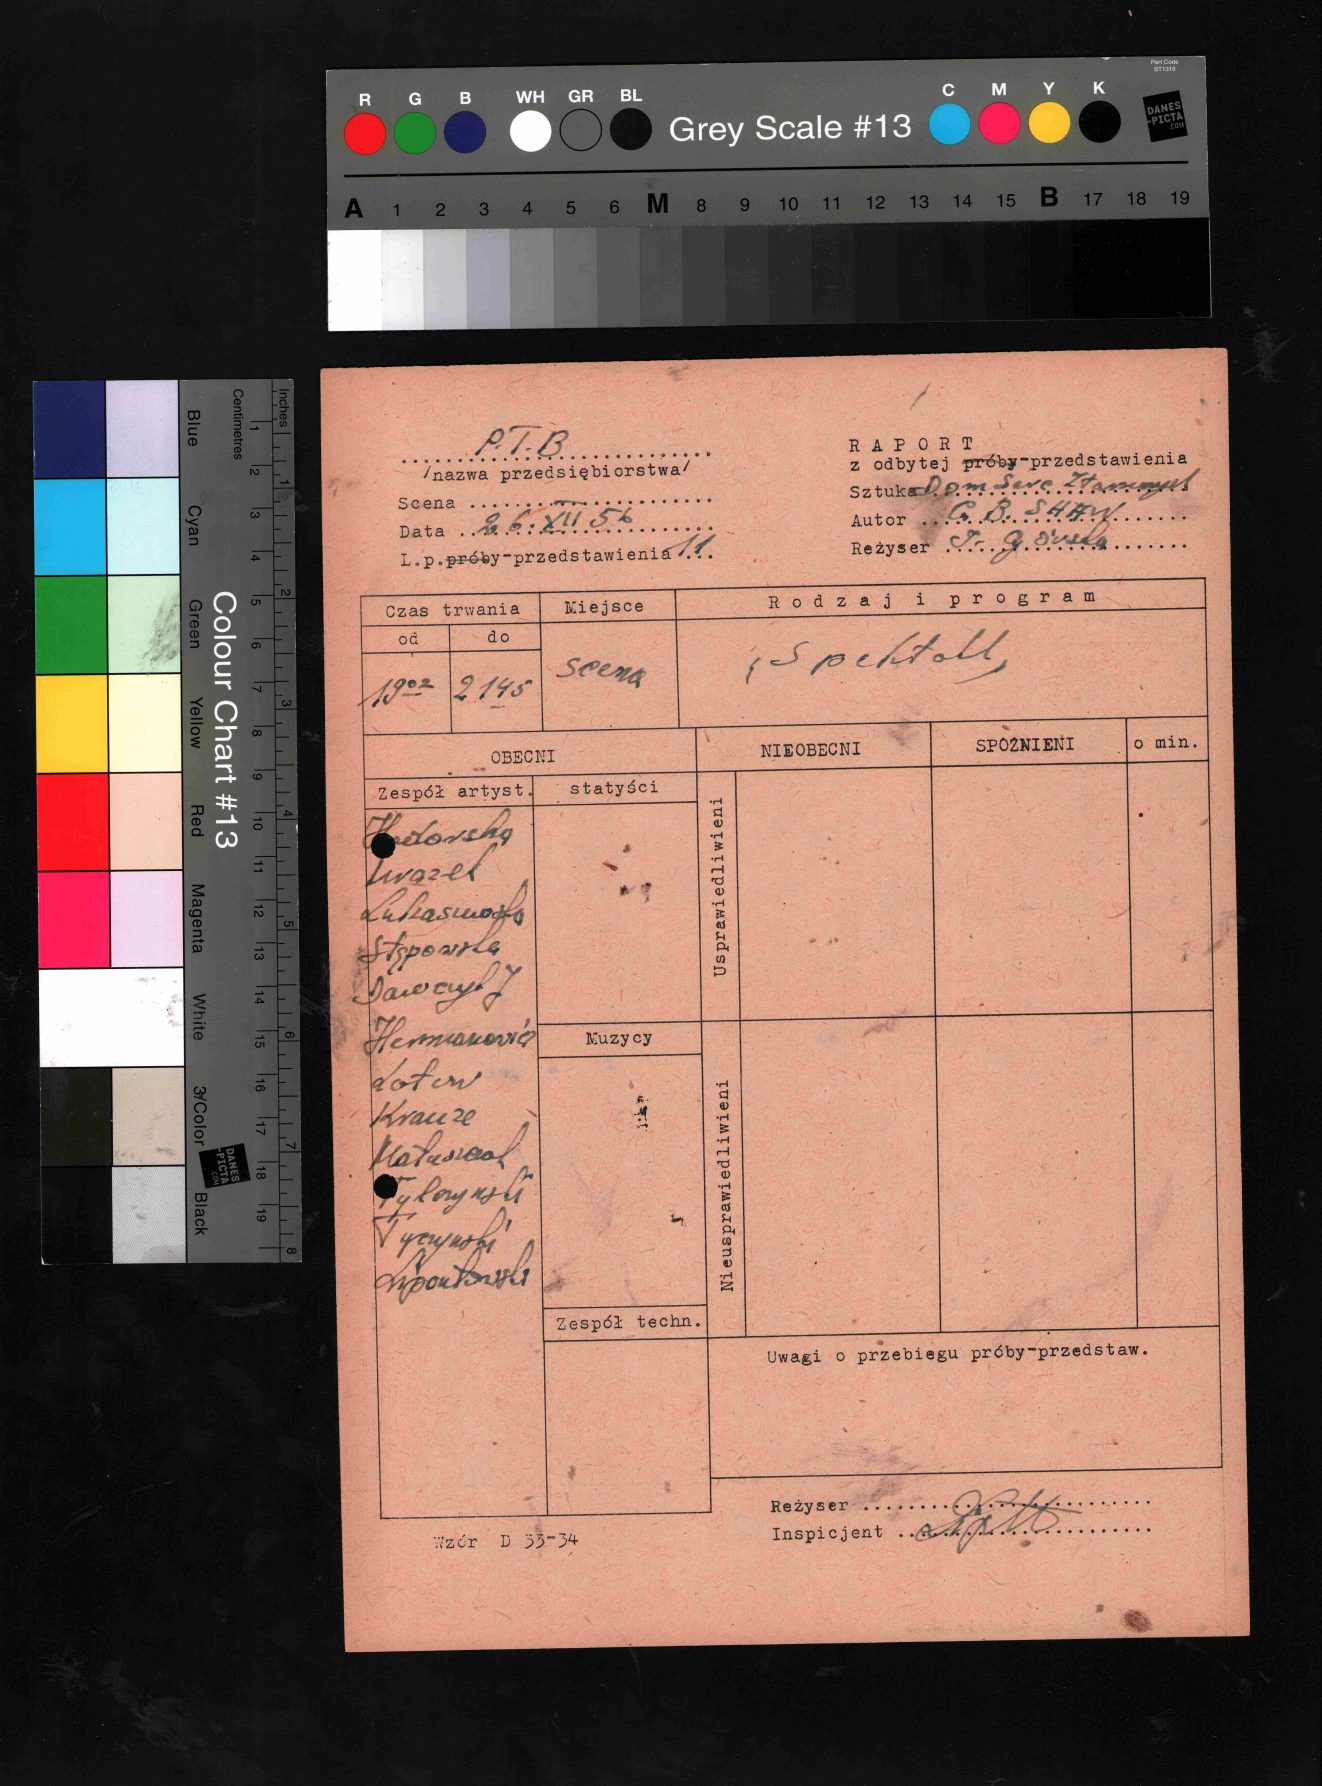 Part Code
ST1316
R G B WH GR BL Grey Scale #13 C M Y K
DANES
-PICTA
.COM
A 1 2 3 4 5 6 M 8 9 10 11 12 13 14 15 B 17 18 19
Colour Chart #13
Blue Cyan Green Yellow Red Magenta White 3/Color Black
Centimetres
1 2 3 4 5 6 7 8 9 10 11 12 13 14 15 16 17 18 19
Inches
1 2 3 4 5 6 7 8
DANES
-PICTA
.COM
P.T.B
/nazwa przedsiębiorstwa/
Scena
Data 26.XII 56
L.p.próby-przedstawienia 11
RAPORT
z odbytej próby-przedstawienia
Sztuka Dom Serc Złamanych
Autor G. B. SHAW
Reżyser
Czas trwania
od do
Miejsce
Rodzaj i program
19 02 2145 scena Spektakl
OBECNI
NIEOBECNI
SPÓŹNIENI
o min.
Zespół artyst.
statyści
Usprawiedliwieni
Stępowska
Muzycy
Krauze
Nieusprawiedliwieni
Tyczyński
Zespół techn.
Uwagi o przebiegu próby-przedstaw.
Reżyser
Inspicjent
Wzór D 33-34